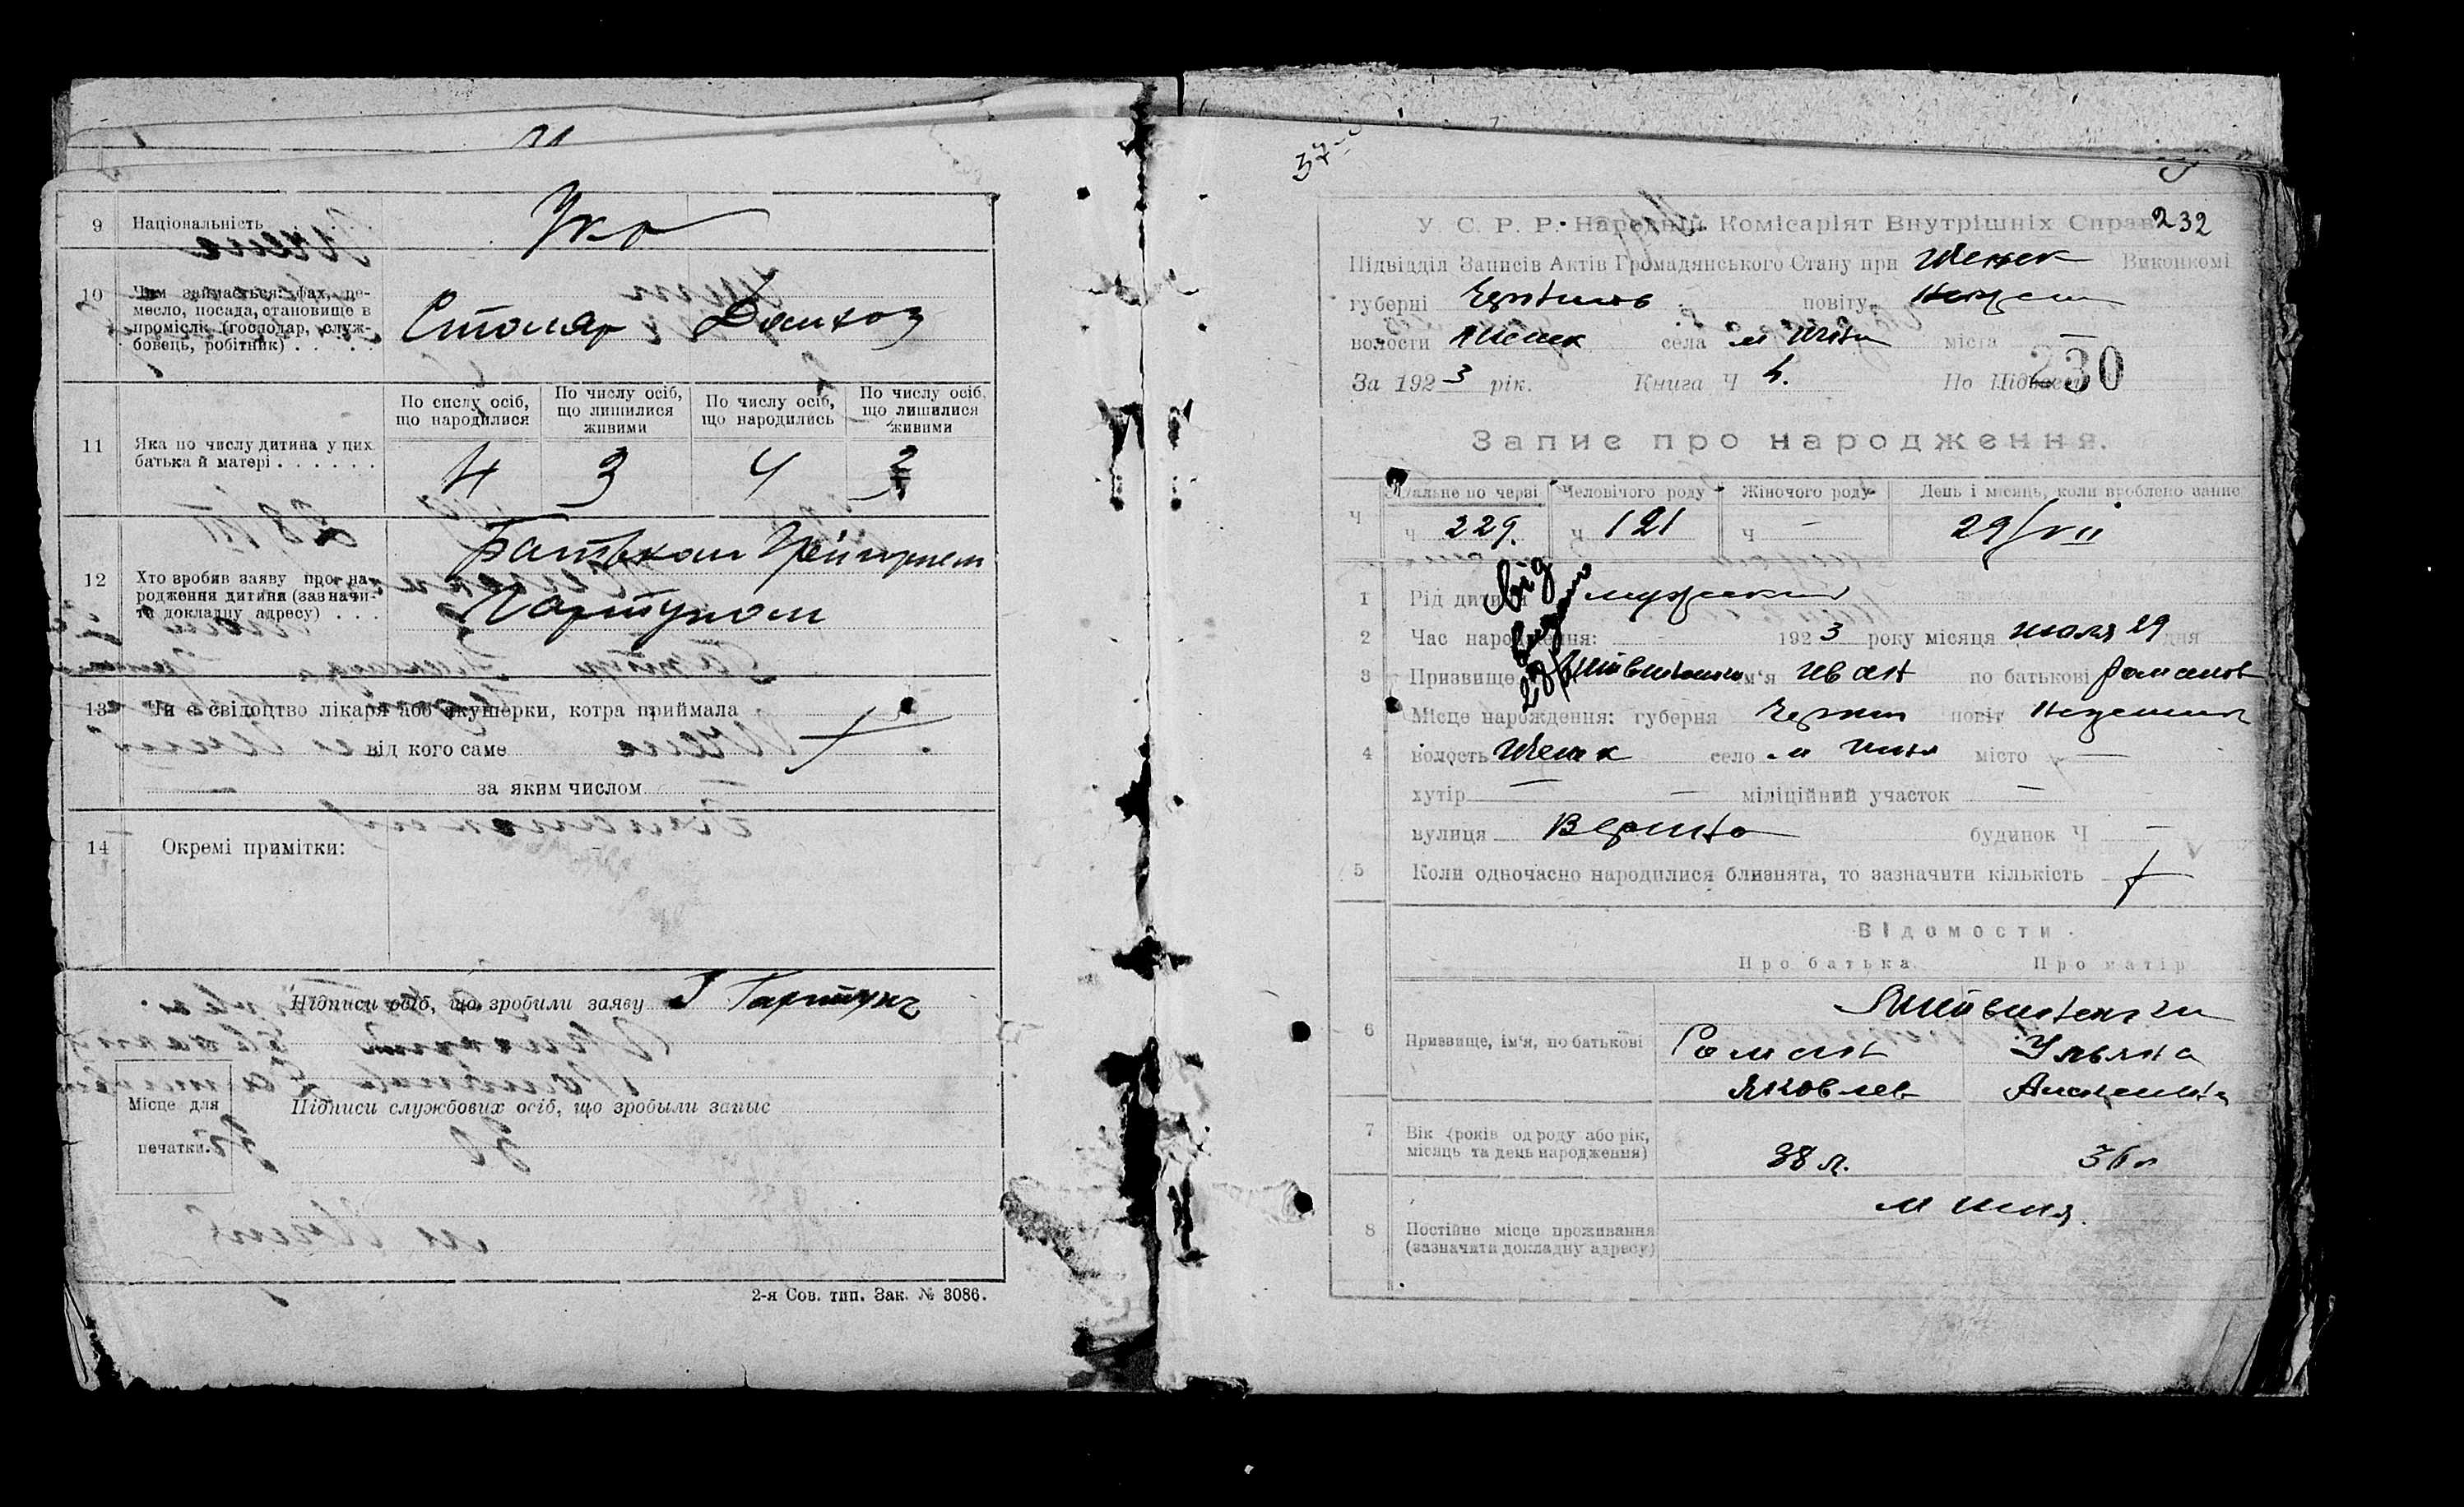 9 Національність Укр
10 Чим займається: фах, ре-
месло, посада, становище в
промислі (господар, служ-
бовець, робітник) . . . . .
Столяр Домхоз
По сислу осіб, що народилися
По числу осіб, що лишилися живими
По числу осіб, що народились
По числу осіб, що лишилися живими
11 Яка по числу дитина у цих
батька й матері . . . . . .
4 3 4 3
12 Хто зробив заяву про на-
родження дитини (зазначи-
ти докладну адресу) . . .
Батьком
Гартунгом
13 Чи є свідоцтво лікаря або якушерки, котра приймала
від кого саме
за яким числом
14 Окремі примітки:
Підписи осіб, що зробили заяву Г Гартунг
Підписи службових осіб, що зробыли запыс
Місце для
печатки.
2-я Сов. тип. Зак. № 3086.
232
У С. Р. Р. Народній Комісаріят Внутрішніх Справ
Підвідділ Записів Актів Громадянського Стану при Ичнек Виконкомі
губерні Чернигов повіту
волости Ичнек села м Ичня міста —
230
За 1923 рік. Книга Ч По
Запис про народження.
Загальне по черзі Человічого роду Жіночого роду День і місяць, коли зроблено запис
Ч Ч 229. Ч 121 Ч — 29/VII
1 Рід дитини мужской
2 Час народження: 1923 року місяця июля 29 дня
3 Призвище ім'я Иван по батькові Романов
4 Місце нарождення: губерня Черниг повіт Нежинск
волость Ичнек село м Ичня місто —
хутір — — міліційний участок —
вулиця будинок Ч —
5 Коли одночасно народилися близнята, то зазначити кількість
Відомости
Про батька Про матір
6 Призвище, ім'я, по батькові
Роман Ульяна
Яковлев
7 Вік (років од роду або рік,
місяць та день народження)
38 л. 36 л
8 Постійне місце проживання
(зазначати докладну адресу)
м Ичня.